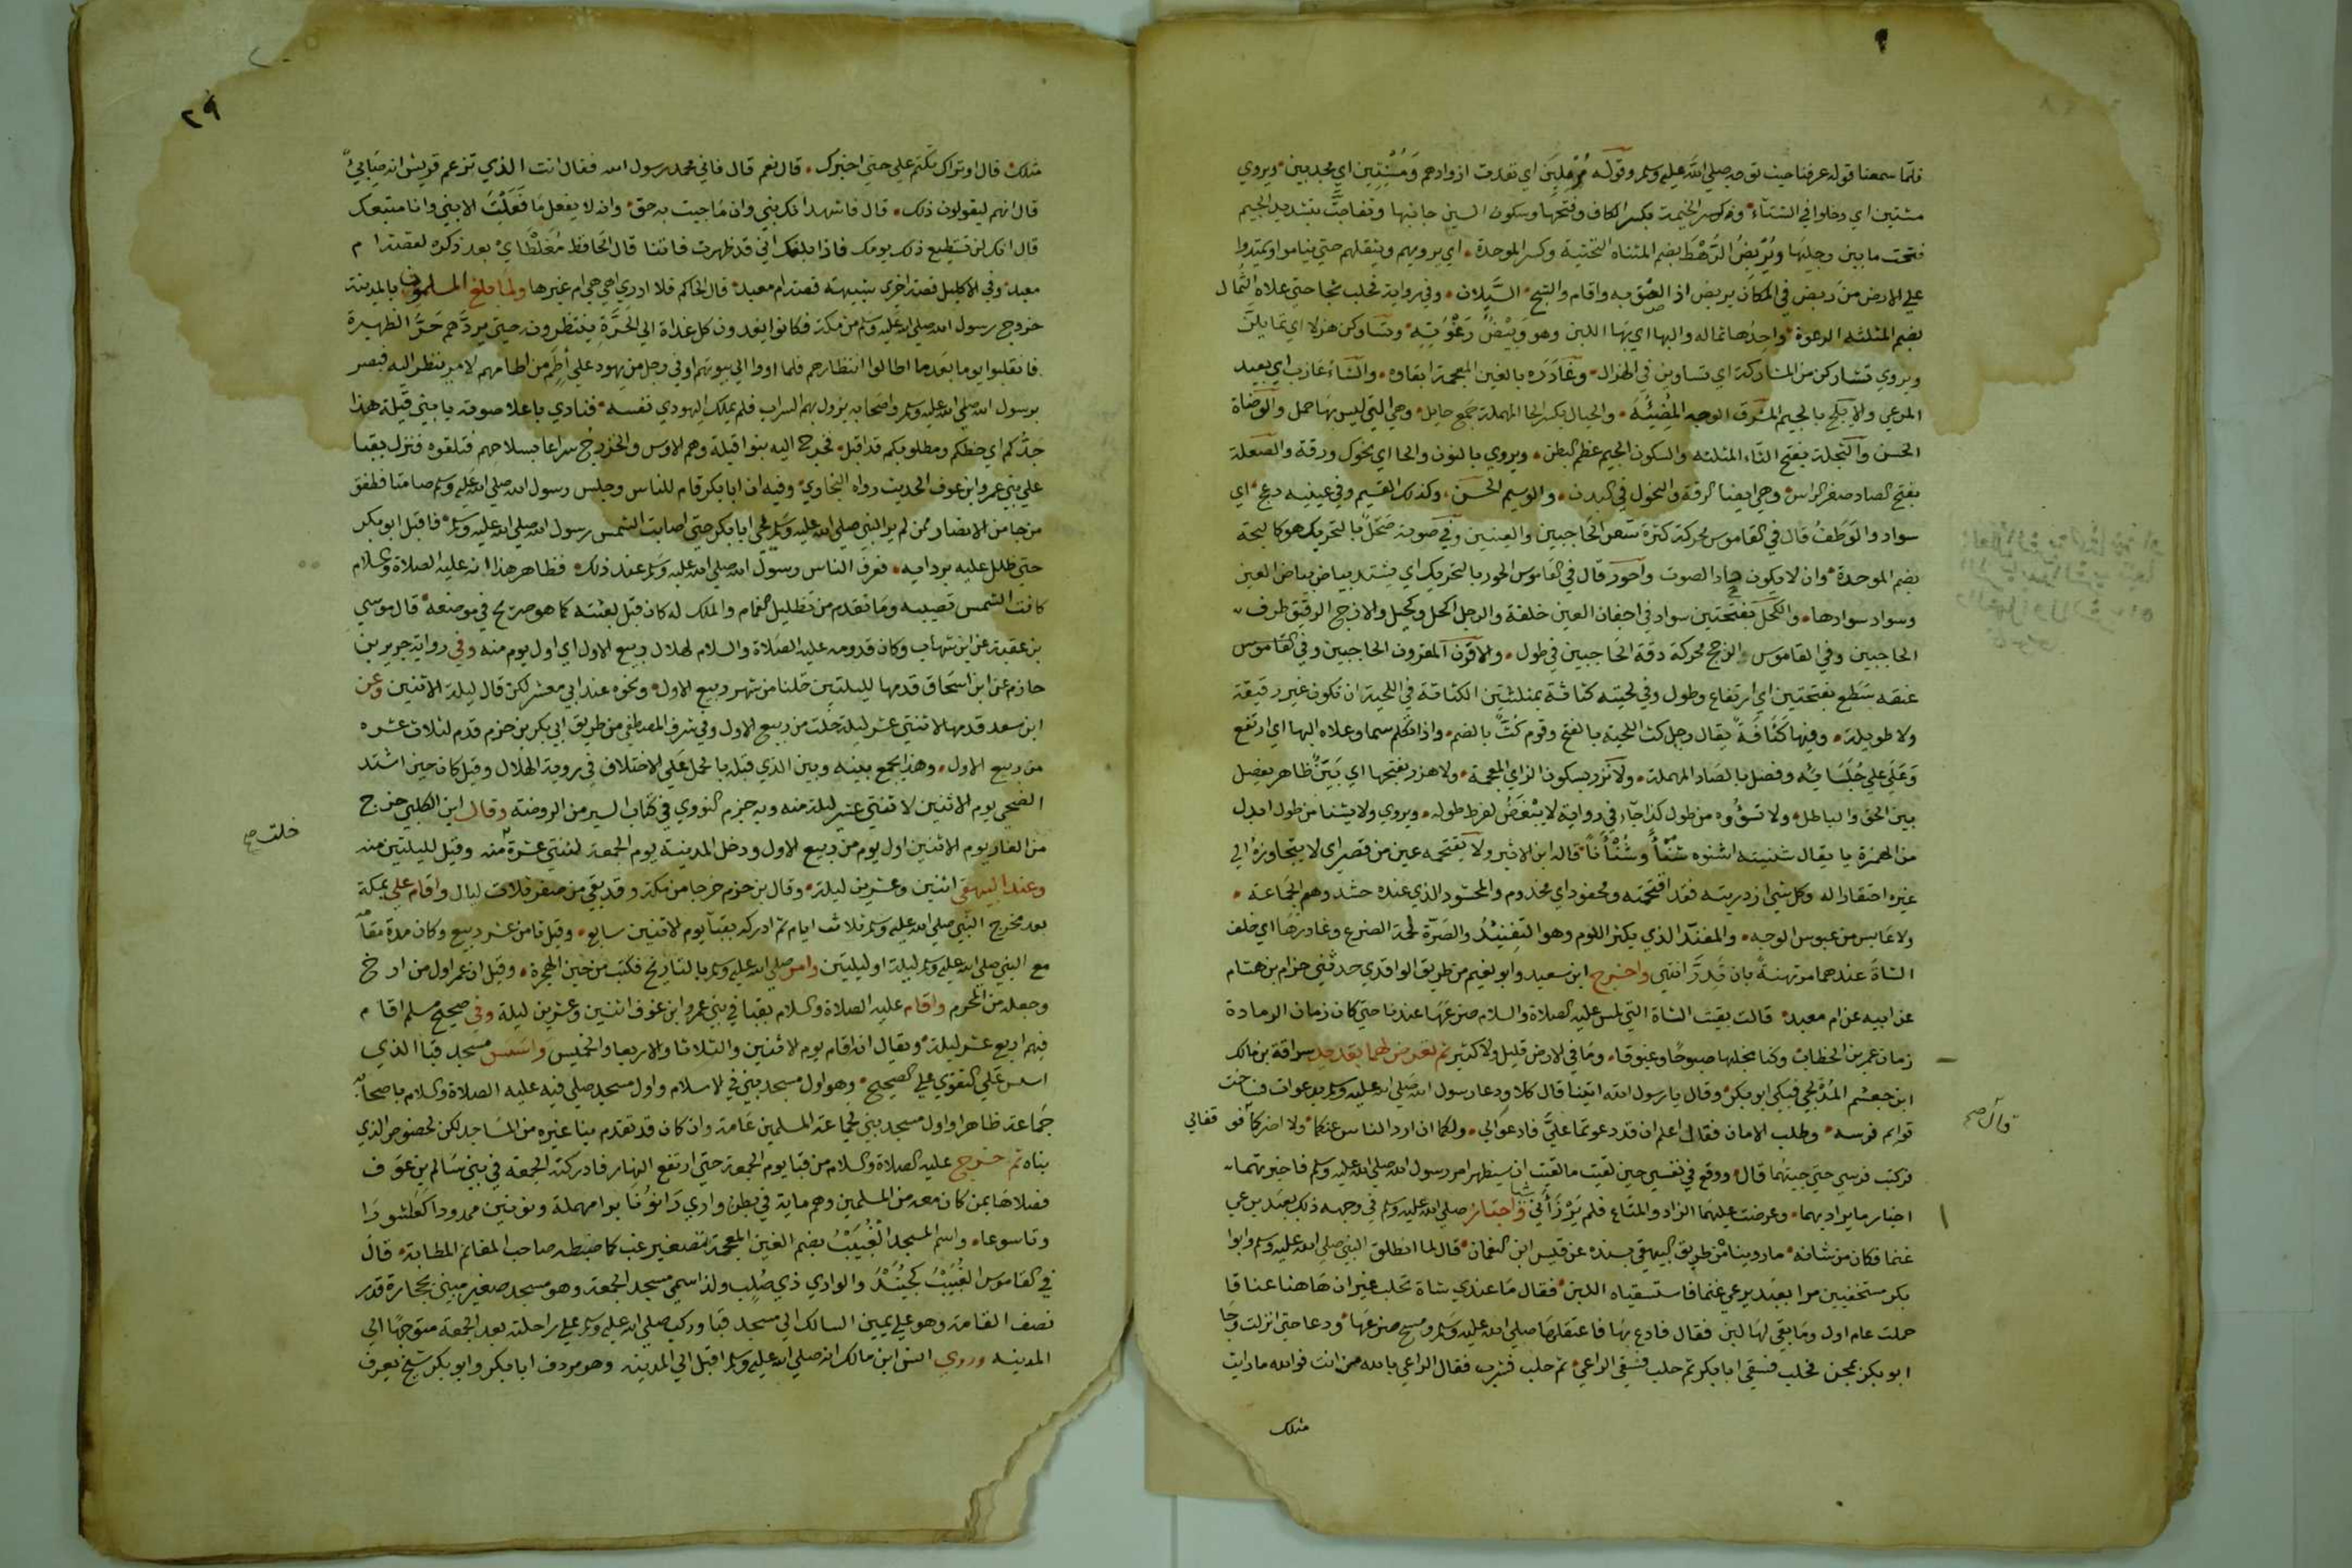 فلما سمعنا قوله عرفنا حيث توجه صلي الله عليه وسلم وقوله مُرْمِلِين اي نفدت ازوادهم وَمُسْنِتِين اي مجدبين ويروي
مشتين اي دخلوا في الشتاء وكسر الخيمة بكسر الكاف وفتحها وسكون السين جانبها وتفاجّت بتشديد الجيم
فتحت ما بين رجليها ويُرْبِضُ الرَّهْط بضم المثناه التحتية وكسر الموحدة اي يرويهم ويثقلهم حتي يناموا ويمتدوا
علي الارض من ربض في المكان يربض اذا لصق به واقام والثج السَّيلان وفي رواية فحلب ثجا حتي علاه الثُمال
بضم المثلثه الرغوة واحدها ثماله والبها اي بها اللبن وهو وَبِيْضُ رَغْوَتِهِ وتساوكن هزلا اي تمايلن
ويروي تشاركن من المشاركة اي تساوين في الهزال وغَادَرَه بالغين المعجمة ابقاه والشاءُ عَازب اي بعيد
المرعي والابلج بالجيم المشرق الوجه المُضِيئُهُ والحيال بكسر الحا المهملة جمع حايل وهي التي ليس بها حمل والوضاة
الحسن والثجلة بفتح الثاء المثلثه والسكون الجيم عظم البطن ويروي بالنون والحا اي نحول ورقة والصعلة
بفتح الصاد صغر الراس وهي ايضا الرقة والنحول في البدن والوسيم الحسن وكذلك القسيم وفي عينيه دعج اي
سواد والوَطَفُ قال في القاموس محركة كثرة شعر الحاجبين والعينين وفي صوته صَحَلٌ بالتحريك هو كالبحة
بضم الموحدة وان لا يكون حاد الصوت واحور قال في القاموس الحور بالتحريك اي يشتد بياض بياض العين
وسواد سوادها والكحل بفتحتين سواد في اجفان العين خلقة والرجل اكحل وكحيل والازج الرقيق طرف
الحاجبين وفي القاموس الزجج محركة دقة الحاجبين في طول والاقرن المقرون الحاجبين وفي القاموس
عنقه سَطَع بفتحتين اي ارتفاع وطول وفي لحيته كثاثة بمثلثتين الكثاثة في اللحية ان تكون غير رقيقة
ولا طويلة وفيها كَثَافَةٌ يقال رجل كث اللحية بالفتح وقوم كُثٌّ بالضم واذا تكلم سما وعلاه البها اي ارتفع
وَعَلَي علي جُلَسَايِهِ وفصل بالصاد المهملة ولا نزر بسكون الزاي المعجمة ولا هزر بفتحها اي بَيِّنٌ ظاهر يفصل
بين الحق والباطل ولا تَشْنُؤُه من طول كذا جآء في رواية لا يبْغَضُ لفرط طوله ويروي ولا يشنا من طول ابدل
من الهمزة يا يقال شنيته اشنوه شَنْأً وشَنْأَنًا قاله ابن الاثير ولا تقتحمه عين من قصر اي لا يتجاوزه الي
غيره احتقارا له وكل شي ازدريته فقد اقتحمته ومحفود اي مخدوم والمحشود الذي عنده حشد وهم الجماعة
ولا عَابِس من عبوس الوجه والمفنّد الذي يكثر اللوم وهو التَفْنِيْدُ والضرّة لحمة الضرع وغادرها اي خلف
الشاة عندها مرتهنةً بان تَدِرَّ انتهي واخرج ابن سعيد وابو نعيم من طريق الواقدي حدثني حزام بن هشام
عن ابيه عن ام معبد قالت بقيت الشاة التي لمس عليه الصلاة والسلام ضرعها عندنا حتي كان زمان الرمادة
زمان عمر بن الخطاب وكنا نحلبها صبوحًا وغبوقا وما في الارض قليل ولا كثير ثم تعرض لهما بقديد سراقة بن مالك
ابن جعشم المُدْلجي فبكي ابو بكر وقال يا رسول الله اتينا قال كلا ودعا رسول الله صلي الله عليه وسلم بدعوات فساخت
قوايم فرسه وطلب الامان فقال اعلم ان قد دعوتما عليّ فادعوالي ولكما ان ارد الناس عنكما ولا اضركما فوقفا لي
قال صح
فركبت فرسي حتي جيتهما قال ووقع في نفسي حين لقيت ما لقيت ان سيظهر امر رسول الله صلي الله عليه وسلم فاخبرتهما
اخبار ما يراد بهما وعرضت عليهما الزاد والمتاع فلم يَرْزَأنِي شيا واجتاز صلي الله عليه وسلم في وجهه ذلك بعبد يرعي
غنما فكان من شانه ما روينا من طريق البيهقي بسنده عن قيس ابن النعمان قال لما انطلق النبي صلي الله عليه وسلم وابوا
بكر مستخفيين مرا بعبد يرعي غنما فاستسقياه اللبن فقال ما عندي شاة تحلب غير ان هاهنا عناقا
حملت عام اول وما بقي لها لبن فقال فادع بها فاعتقلها صلي الله عليه وسلم ومسح ضرعها ودعا حتي انزلت وجا
ابو بكر بمجن فحلب فسقي ابا بكر ثم حلب فسقي الراعي ثم حلب فشرب فقال الراعي بالله من انت فوالله ما رايت
مثلك
٢٩
مثلك قال اوتراك تكتم علي حتي اخبرك قال نعم قال فاني محمد رسول الله فقال انت الذي تزعم قريش انه صَابِيءٌ
قال انهم ليقولون ذلك قال فاشهد انك نبي وان ما جيت به حق وانه لا يفعل ما فَعَلْتَ الا نبي وانا متبعك
قال انك لن تستطيع ذلك يومك فاذا بلغك اني قد ظهرت فاتنا قال الحافظ مُغَلْطَايْ بعد ذكره لقصة ام
معبد وفي الاكليل قصة اخري شبيهة قصة ام معبد قال الحاكم فلا ادري اهي هي ام غيرها ولما بلغ المسلمون بالمدينة
خروج رسول الله صلي الله عليه وسلم من مكة فكانوا يغدون كل غداة الي الحَرَّةِ ينتظرونه حتي يردّهم حَرُّ الظهيرة
فانقلبوا يوما بعد ما اطالوا انتظارهم فلما اووا الي بيوتهم اوفي رجل من يهود علي أُطُم من اطامهم لامر ينظر اليه فبصر
برسول الله صلي الله عليه وسلم واصحابه يزول بهم السراب فلم يملك اليهودي نفسه فنادي باعلا صوته يا بني قَيلة هذا
جَدُّكم اي حظكم ومطلوبكم قد اقبل فخرج اليه بنوا قيلة وهم الاوس والخزرج سراعا بسلاحهم فتلقوه فنزل بقبا
علي بني عمرو ابن عوف الحديث رواه البخاري وفيه ان ابا بكر قام للناس وجلس رسول الله صلي الله عليه وسلم صامتا فطفق
من جا من الانصار ممن لم ير النبي صلي الله عليه وسلم يحيي ابا بكر حتي اصابت الشمس رسول الله صلي الله عليه وسلم فاقبل ابو بكر
حتي ظلل عليه بردايه فعرف الناس رسول الله صلي الله عليه وسلم عند ذلك فظاهر هذا انه عليه الصلاة والسلام
كانت الشمس تصيبه وما تقدم من تظليل الغمام والملك له كان قبل بعثته كما هو صريح في موضعه قال موسي
بن عقبة عن ابن شهاب وكان قدومه عليه الصلاة والسلام لهلال ربيع الاول اي اول يوم منه وفي رواية جرير بن
حازم عن ابن اسحاق قدمها لليلتين خلتا من شهر ربيع الاول ونحوه عند ابي معشر لكن قال ليلة الاثنين وعن
ابن سعد قدمها لاثنتي عشر ليلة خلت من ربيع الاول وفي شرف المصطفي من طريق ابي بكر بن حزم قدم لثلاث عشره
من ربيع الاول وهذا يجمع بينه وبين الذي قبله بالحمل علي الاختلاف في روية الهلال وقيل كان حين اشتد
الضحي يوم الاثنين لاثنتي عشر ليلة منه وبه جزم النووي في كتاب السير من الروضة وقال ابن الكلبي خرج
خلت صح
من الغار يوم الاثنين اول يوم من ربيع الاول ودخل المدينة يوم الجمعة لثنتي عشرة منه وقيل لليلتين منه
وعند البيهقي اثنين وعشرين ليلة وقال بن حزم خرجا من مكة وقد بقي من صفر ثلاث ليال واقام علي بمكة
بعد مخرج النبي صلي الله عليه وسلم ثلاث ايام ثم ادركه بقبآ يوم الاثنين سابع وقيل ثامن عشر ربيع وكان مدة مقامه
مع النبي صلي الله عليه وسلم ليلة او ليلتين وامر صلي الله عليه وسلم بالتاريخ فكتب من حين الهجرة وقيل ان عمر اول من ارخ
وجعله من المحرم واقام عليه الصلاة والسلام بقبا في بني عمرو ابن عوف اثنين وعشرين ليلة وفي صحيح مسلم اقام
فيهم اربع عشر ليلة ويقال انه اقام يوم الاثنين والثلاثا والاربعا والخميس واسَّسَ مسجد قبا الذي
اسس علي التقوي علي الصحيح وهو اول مسجد بني في الاسلام واول مسجد صلي فيه عليه الصلاة والسلام باصحابه
جَماعة ظاهرا واول مسجد بني لجماعة المسلمين عامة وان كان قد تقدم بنا غيره من المساجد لكن لخصوص الذي
بناه ثم خرج عليه الصلاة والسلام من قبا يوم الجمعة حتي ارتفع النهار فادركته الجمعة في بني سَالم بن عوف
فصلاها بمن كان معه من المسلمين وهم ماية في بطن وادي رَانُوْنَا برا مهملة ونونين ممدودا كعاشورا
وتاسوعا واسم المسجد الغُبَيْبُ بضم الغين المعجمة تصغير غب كما ضبطه صاحب المغانم المطابة قال
في القاموس الغُبَيْبُ كجُنَيْدٌ والوادي ذي صُلب ولذا سمي مسجد الجمعة وهو مسجد صغير مبني بحجارة قدر
نصف القامة وهو علي يمين السالك الي مسجد قبا وركب صلي الله عليه وسلم علي راحلته بعد الجمعة متوجهًا الي
المدينه وروي انس ابن مالك انه صلي الله عليه وسلم اقبل الي المدينه وهو مردف ابا بكر وابو بكر شيخ يعرف